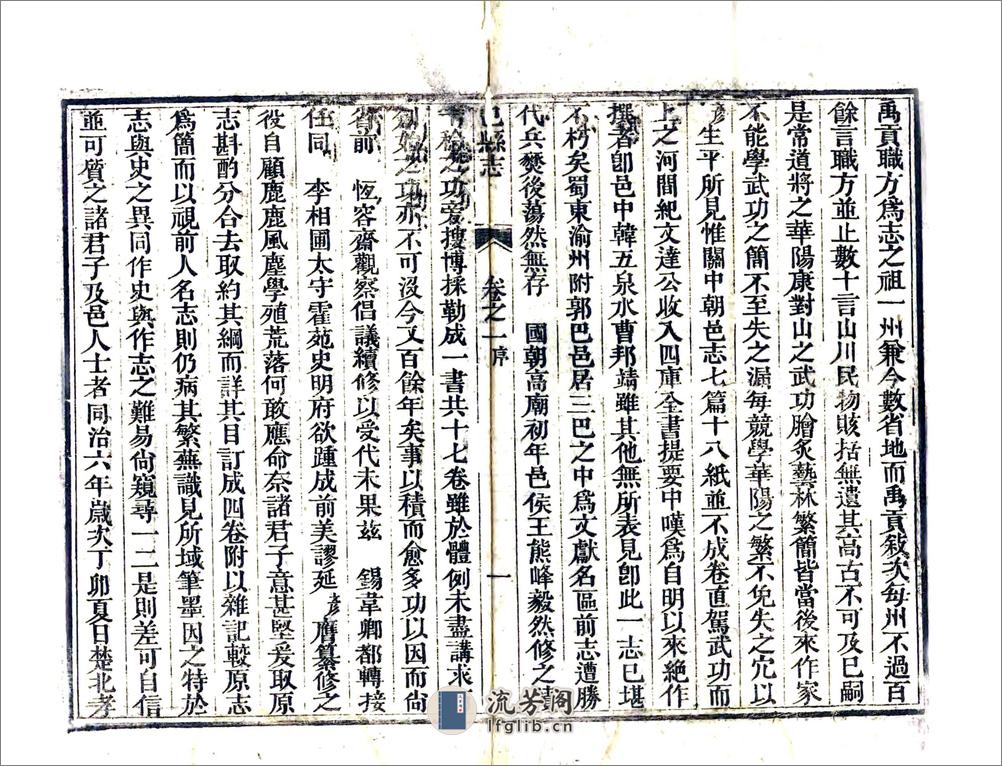 禹貢職方爲志之祖一州兼今數省地而禹貢敍次每州不過百
餘言職方並止數十言山川民物賅括無遺其高古不可及已嗣
是常道將之華陽康對山之武功膾炙藝林繁簡皆當後來作家
不能學武功之簡不至失之漏每競學華陽之繁不免失之冗以
彥生平所見惟關中朝邑志七篇十八紙並不成卷直駕武功而
上之河間紀文達公收入四庫全書提要中嘆爲自明以來絶作
撰者卽邑中韓五泉水曹邦靖雖其他無所表見卽此一志已堪
不朽矣蜀東渝州附郭巴邑居三巴之中爲文獻名區前志遭勝
代兵燹後蕩然無存　國朝高廟初年邑侯王熊峰毅然修之
巴縣志
卷之一序
一
之功旁搜博採勒成一書共十七卷雖於體例未盡講求
之功亦不可沒今又百餘年矣事以積而愈多功以因而尙
前　恆容齋觀察倡議續修以受代未果茲　錫韋卿都轉接
任同　李相圃太守霍苑史明府欲踵成前美謬延　彥膺纂修之
役自顧鹿鹿風塵學殖荒落何敢應命奈諸君子意甚堅爰取原
志斟酌分合去取約其綱而詳其目訂成四卷附以雜記較原志
爲簡而以視前人名志則仍病其繁蕪識見所域筆墨因之特於
志與史之異同作史與作志之難易尙窺尋一二是則差可自信
並可質之諸君子及邑人士者同治六年歲次丁卯夏日楚北孝
流芳閣
lfglib.com